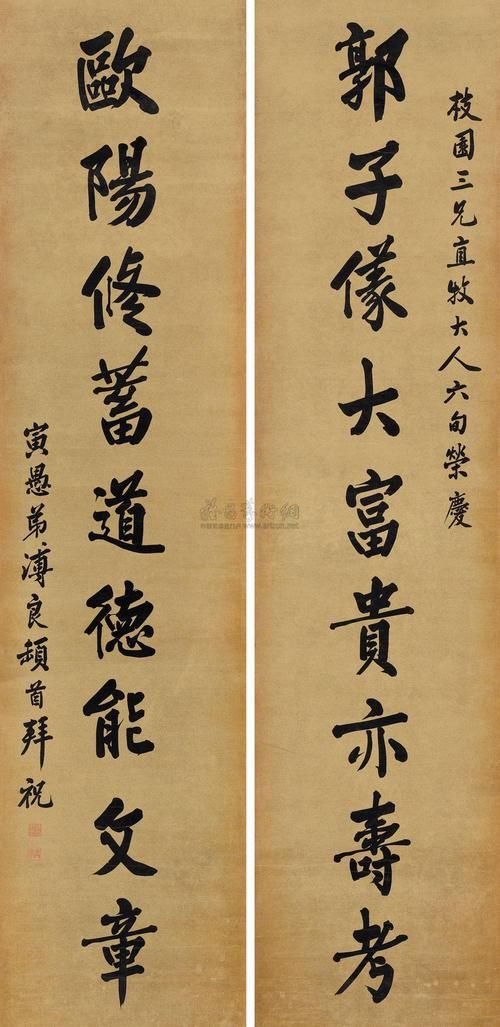 枝園三兄直牧大人六旬榮慶
郭子儀大富貴亦壽考
歐陽修蓄道德能文章
寅愚弟溥良頓首拜祝